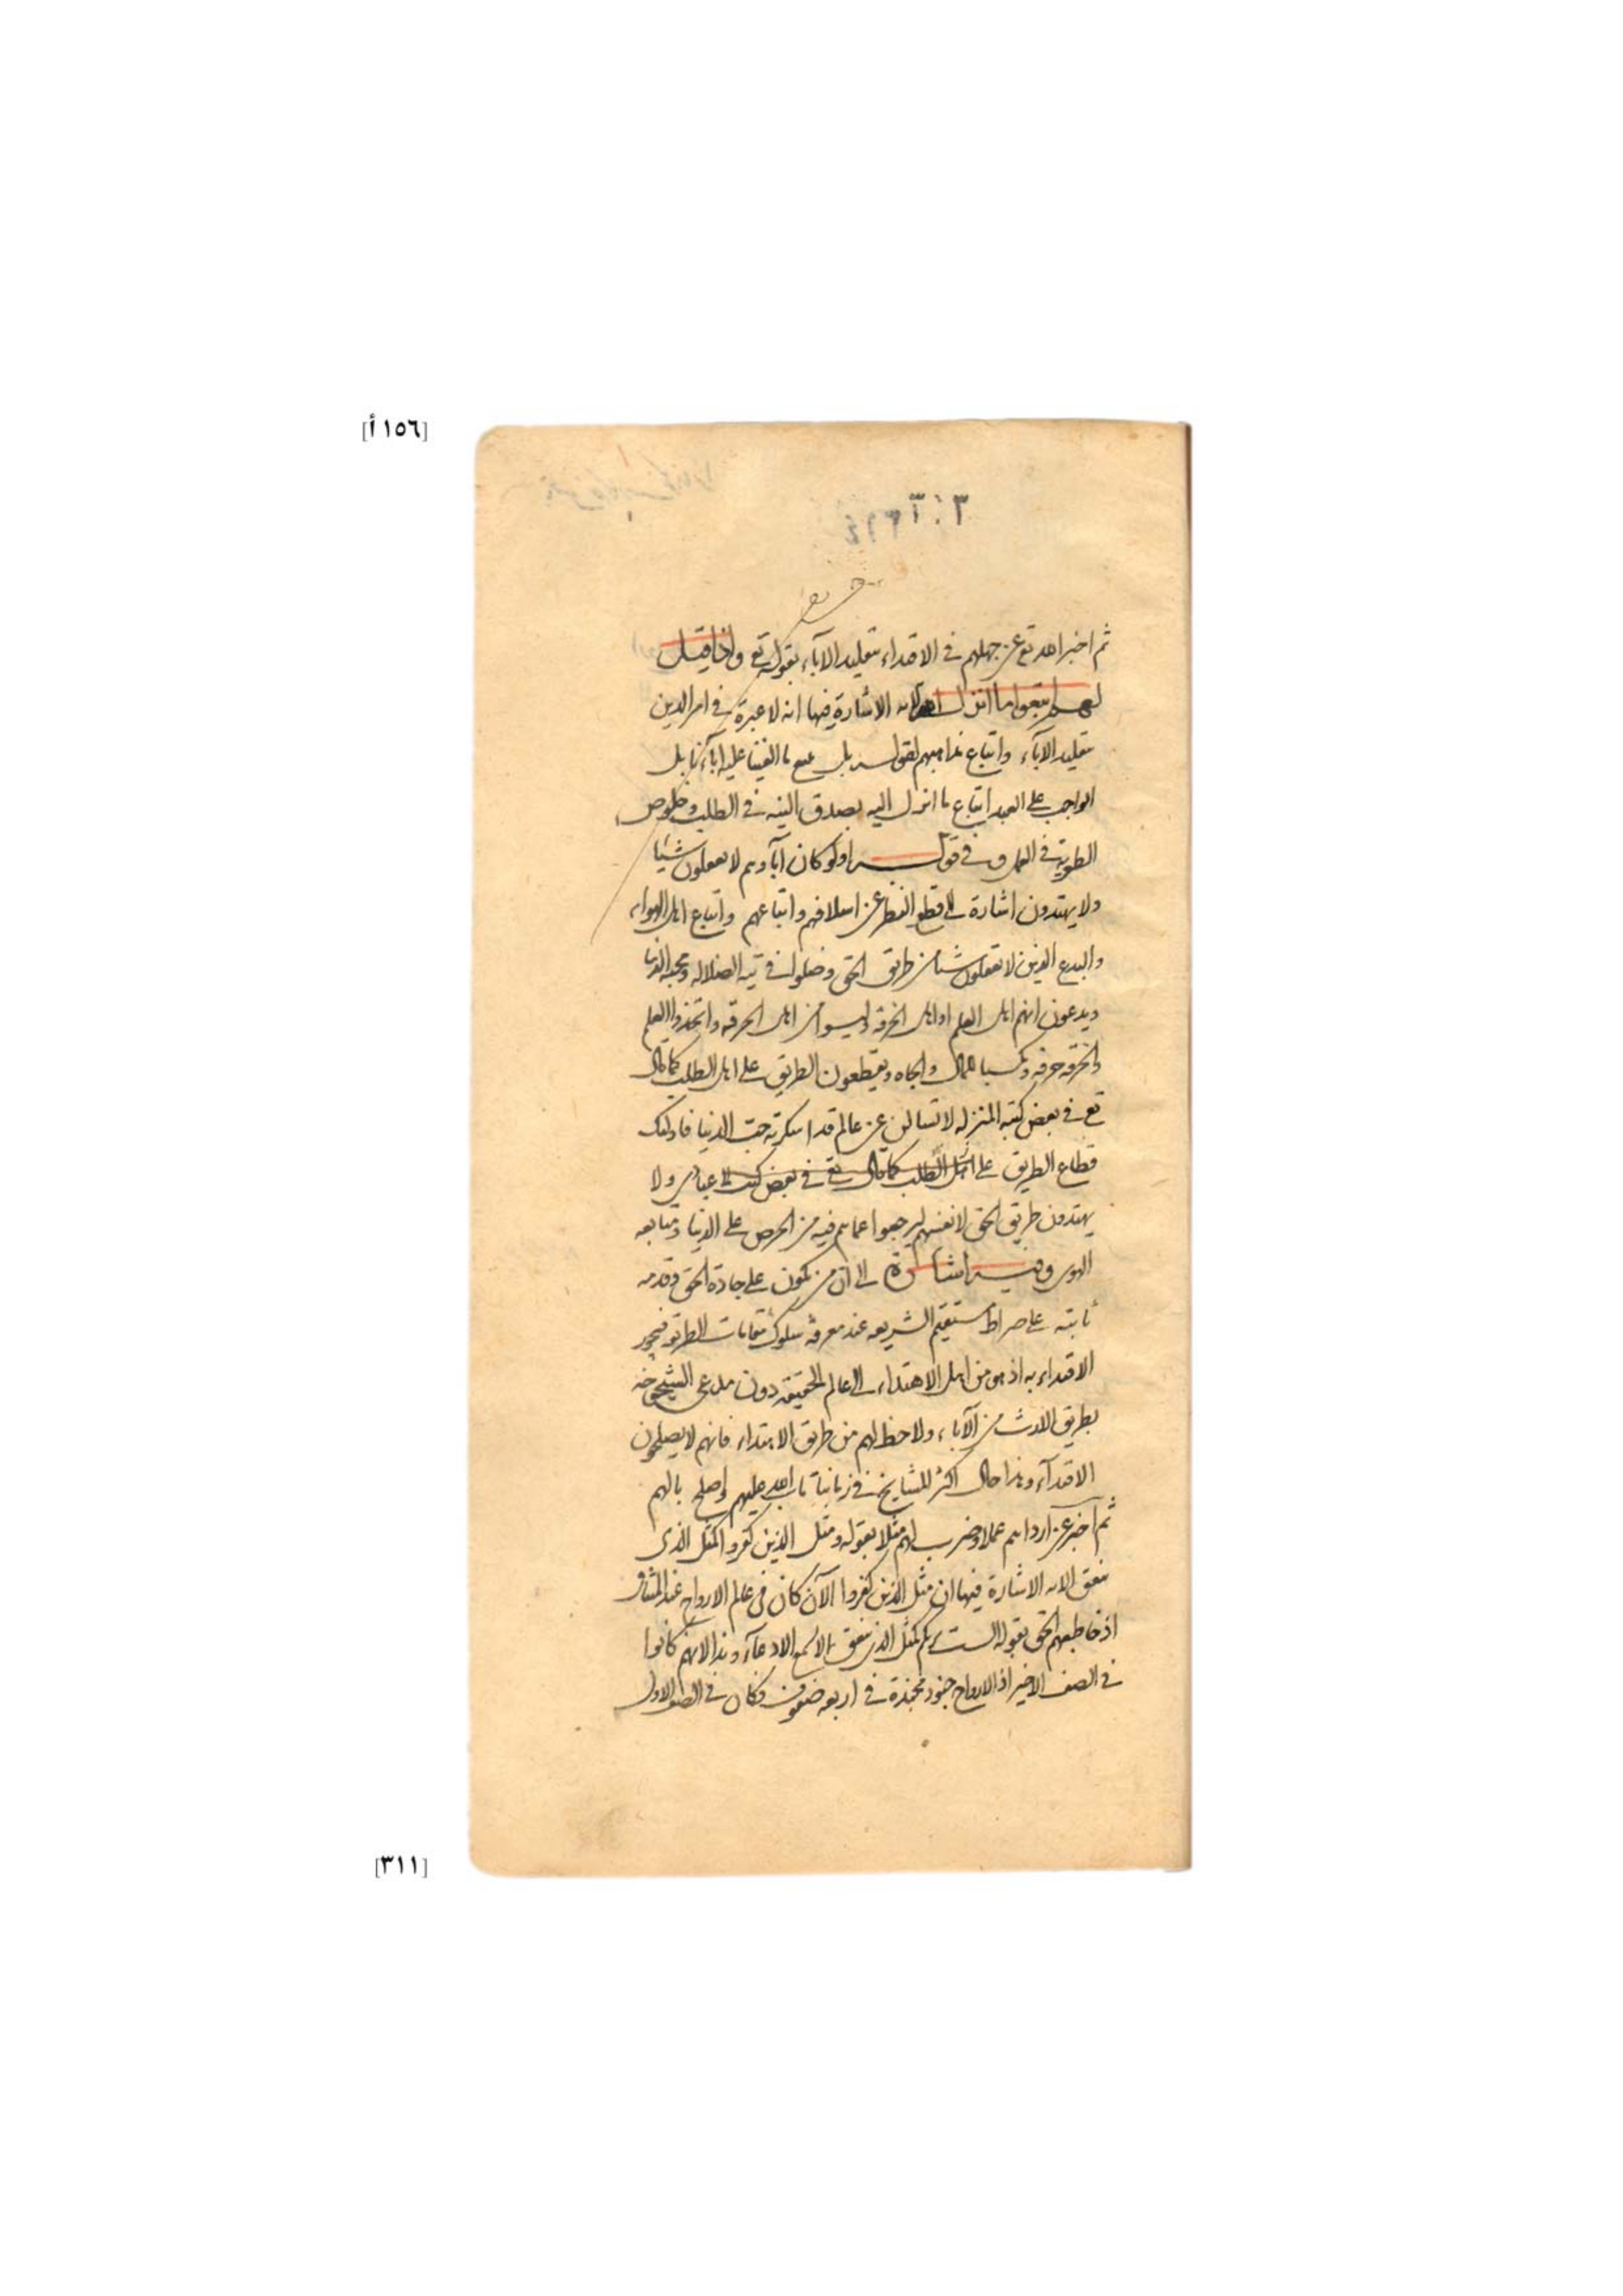 [١٥٦ أ]
ثم اخبر الله تع عن جهلهم فى الاقتداء بتقليد الآباء بقوله تع واذا قيل
لهم اتبعوا ما انزل الله الايه الاشارة فيها انه لا عبرة فى امر الدين
بتقليد الآباء واتباع مذاهبهم لقوله بل نتبع ما الفينا عليه اباءنا بل
الواجب على العبد اتباع ما انزل اليه بصدق النيه فى الطلب وخلوص
الطوية فى العمل وفى قوله اولو كان آباؤهم لا يعقلون شيئا
ولا يهتدون اشارة الى قطع النظر عن اسلافهم واتباعهم واتباع اهل الهواء
والبدع الذين لا يعقلون شيئا من طريق الحق وضلوا فى تيه الضلاله ومحبة الدنيا
ويدعون انهم اهل العلم او اهل الخرقه وليسوا من اهل الحرقه واتخذوا العلم
والخرقه حرفه وكسبا للمال والجاه ويقطعون الطريق على اهل الطلب كما قال
تع فى بعض كتبه المنزله لا تسالن عن عالم قد اسكرته حب الدنيا فاولئك
قطاع الطريق على اهل الطلب كما قال تع فى بعض كتبه عبادى ولا
يهتدون طريق الحق لانفسهم ليرجعوا عما هم فيه من الحرص على الدنيا ومتابعه
الهوى وفيه اشارة الى ان من يكون على جادة الحق وقدمه
ثابته على صراط مستقيم الشريعه عند معرفة سلوك مقامات الطريق فيجوز
الاقتداء به اذ هو من اهل الاهتداء الى عالم الحقيقه دون مدعى الشيخوخه
بطريق الارث من الآباء ولا حظ لهم من طريق الاهتداء فانهم لا يصلحون
الاقتدآء وهذا حال اكثر المشايخ فى زماننا تاب الله عليهم واصلح بالهم
ثم اخبر عن ارداهم عملا وضرب لهم مثلا بقوله ومثل الذين كفروا كمثل الذى
ينعق الايه الاشارة فيها ان مثل الذين كفروا الآن كان فى عالم الارواح عند الميثاق
اذ خاطبهم الحق بقوله الست بربكم كمثل الذى ينعق بما لا يسمع الا دعآء وندا لانهم كانوا
فى الصف الاخير اذ الارواح جنود مجندة فى اربعه صفوف فكان فى الصف الاول
[٣١١]